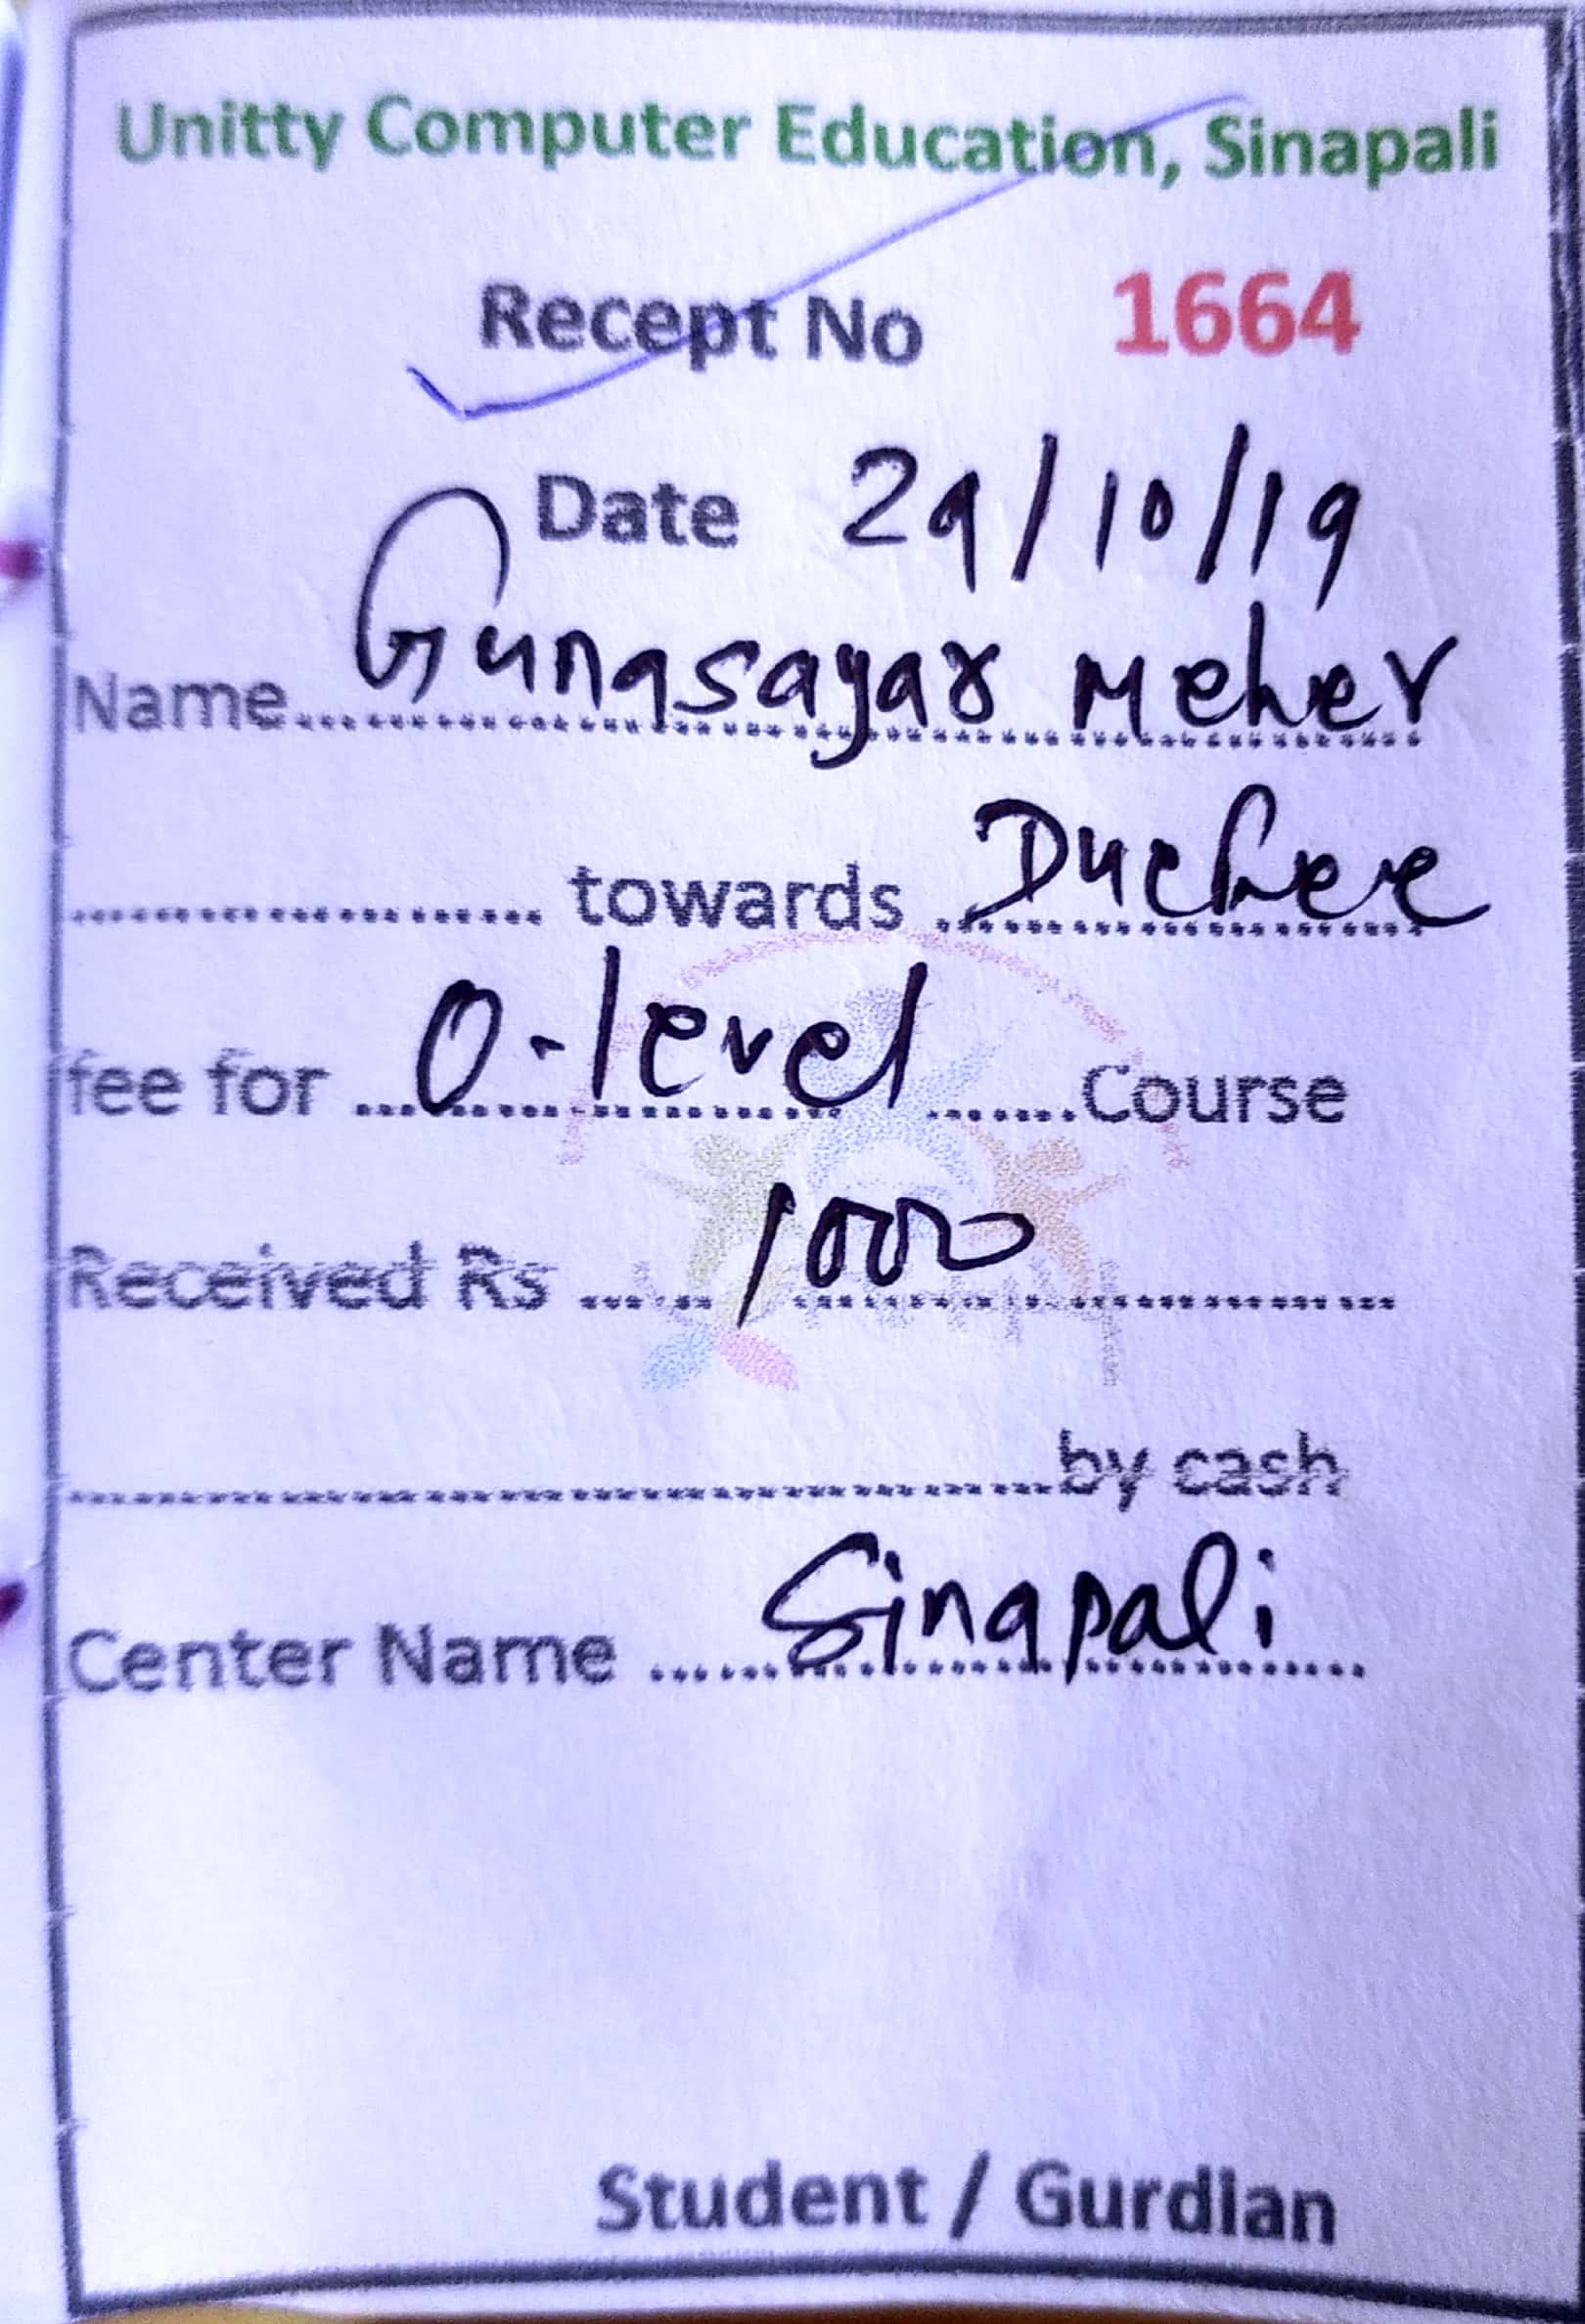 Unitty Computer Education, Sinapali
Recept No 1664
Date 29/10/19
Name....Gunasagar Meher
.................... towards ..Duefee
fee for ...O-level.......Course
Received Rs ......1000..............
........................................by cash
Center Name ......Sinapali....
Student / Gurdian